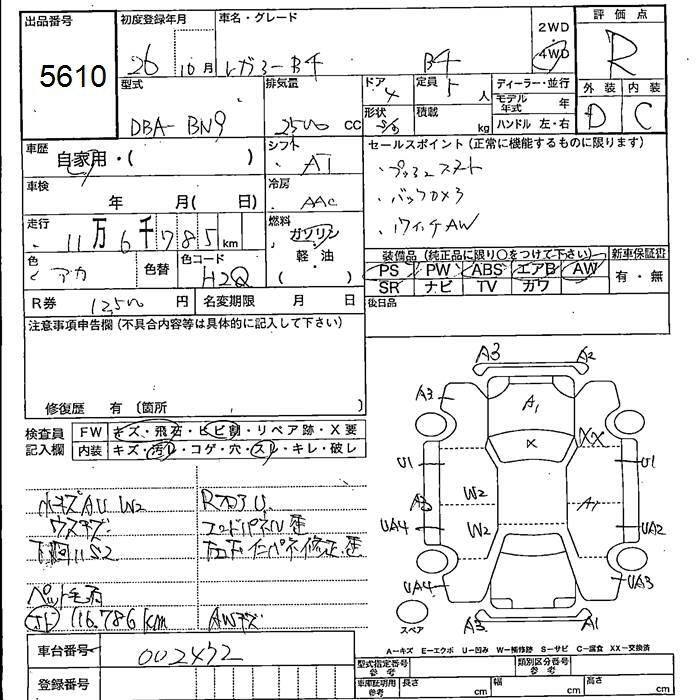 出品番号
5610
初度登録年月
26 10月
車名・グレード
レガシーB4 B4
2WD
4WD
評価点
R
外装 内装
D C
型式
DBA- BN9
排気量
2500 cc
ドア
4
定員
5 人
形状
積載
kg
ディーラー・並行
モデル年式 年
ハンドル 左・右
車歴
自家用・( )
シフト
AT
セールスポイント (正常に機能するものに限ります)
・プッシュスタート
・バックカメラ
・ AW
車検
年 月( 日)
冷房
AAC
走行
11万6千785km
燃料
ガソリン
軽・油
( )
色
アカ
色替
色コード
H2Q
装備品 (純正品に限り○をつけて下さい)
新車保証書
PS PW ABS エアB AW
SR ナビ TV ガワ
有・無
R券 12500 円
名変期限 月 日
後日品
注意事項申告欄 (不具合内容等は具体的に記入して下さい)
修復歴 有 (箇所 )
検査員記入欄
FW キズ・飛石・ヒビ割・リペア跡・X要
内装 キズ・汚れ・コゲ・穴・スレ・キレ・破レ
小キズAU W2
ウスキズ
下廻りS2
ペット毛有
116,786km
コアパネル歪
修正、歪
AWキズ
A3 A2
A3 A1
X XX
U1 U1
W2
A3 A1
W2
UA4 UA2
UA4 UA3
スペア
A3 A1
A-キズ E-エクボ U-凹み W-補修跡 S-サビ C-腐食 XX-交換済
車台番号
002432
登録番号
型式指定番号 参考
類別区分番号 参考
車庫証明用 参考
長さ cm
幅 cm
高さ cm